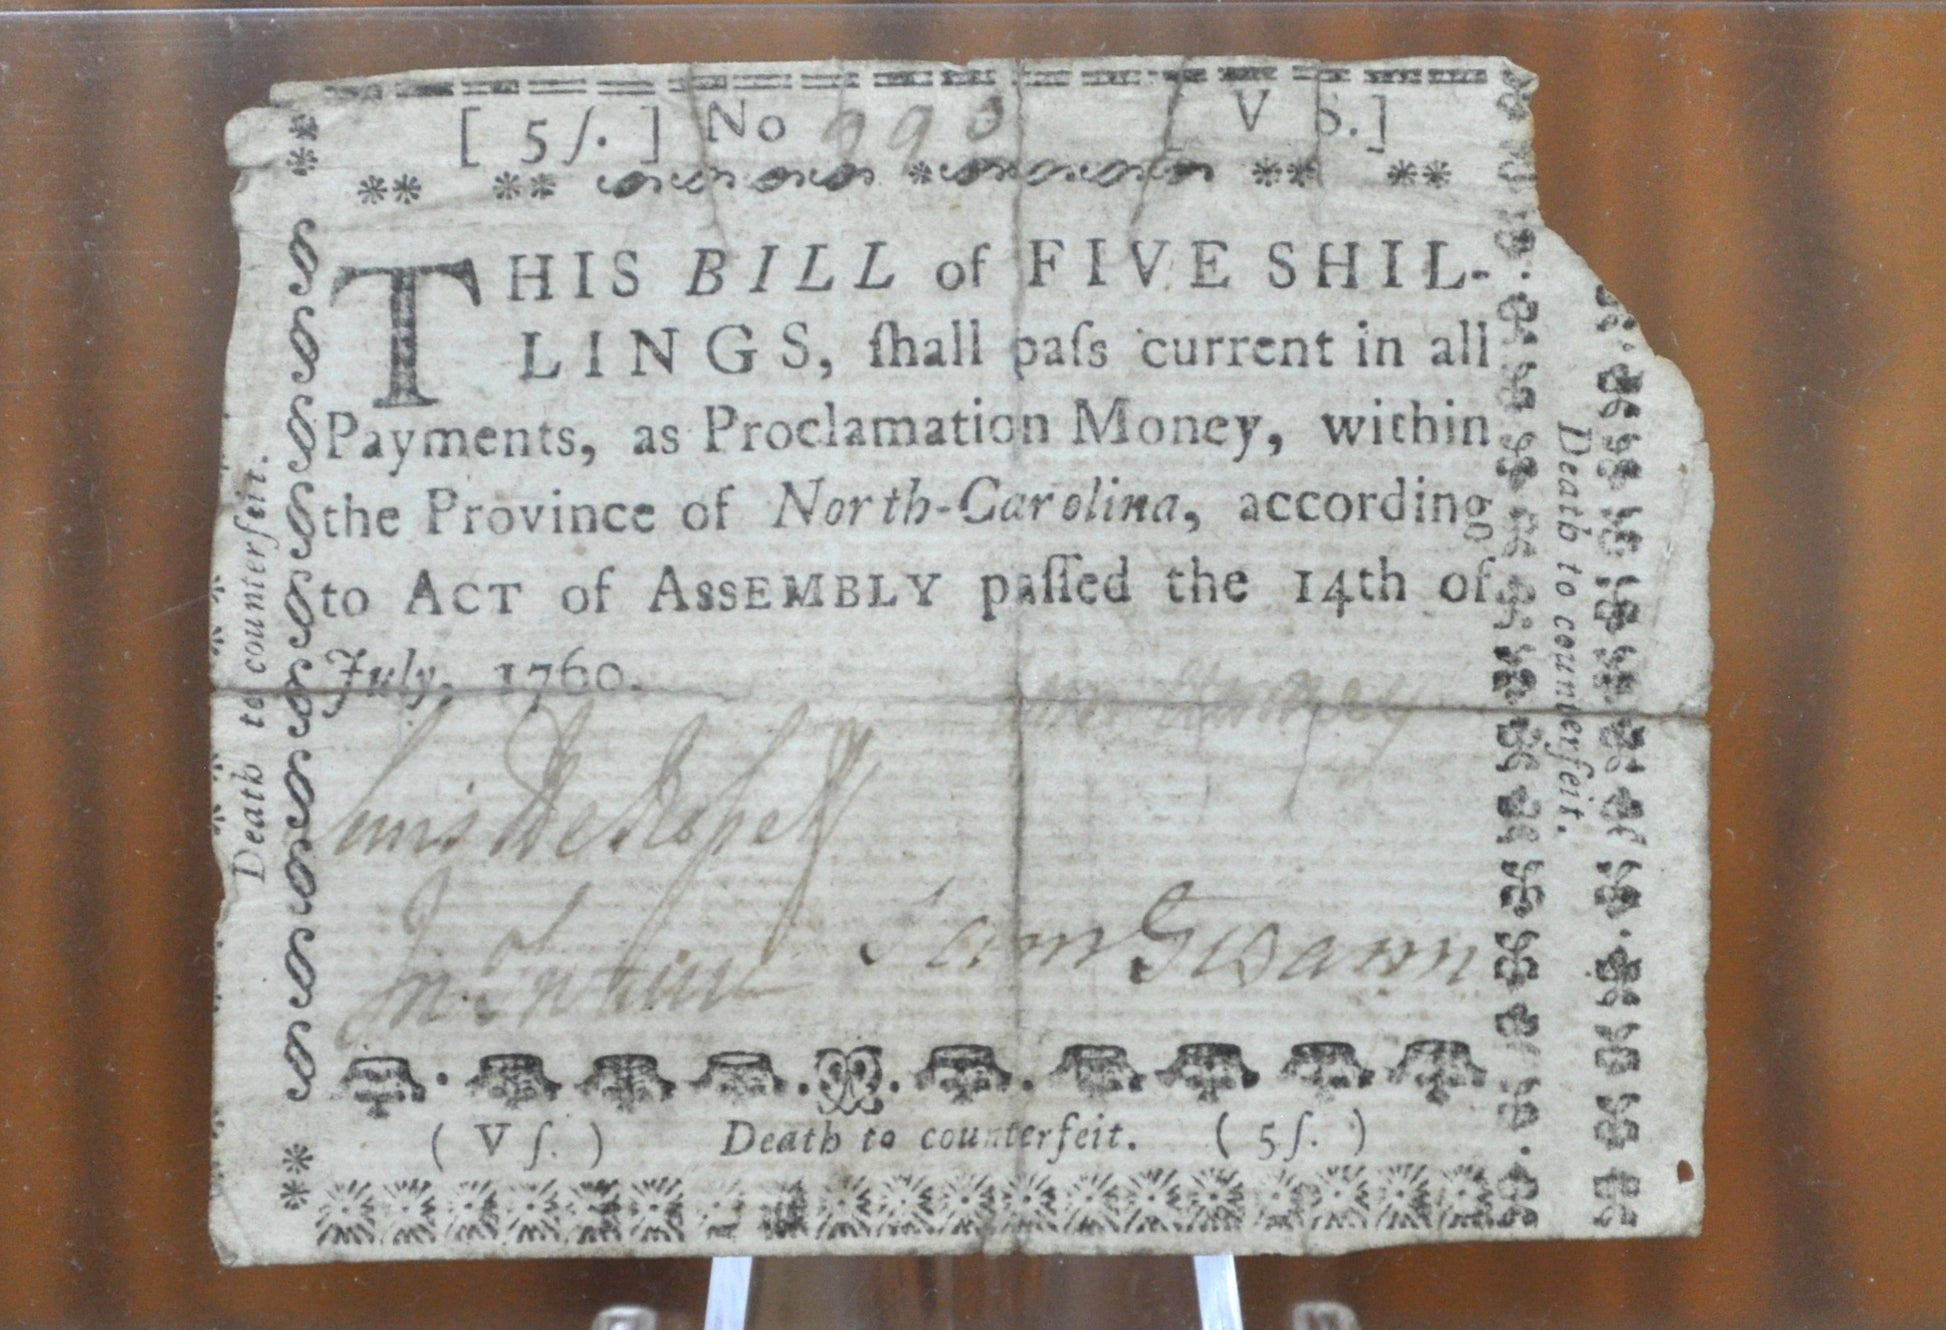 [ 5ſ. ] No 993 [ V S. ]
THIS BILL of FIVE SHIL-
LINGS, ſhall paſs current in all
Payments, as Proclamation Money, within
the Province of North-Carolina, according
to ACT of ASSEMBLY paſſed the 14th of
July, 1760.
Lewis De Rosset
Sam Swann
( V ſ. ) Death to counterfeit. ( 5 ſ. )
Death to counterfeit.
Death to counterfeit.